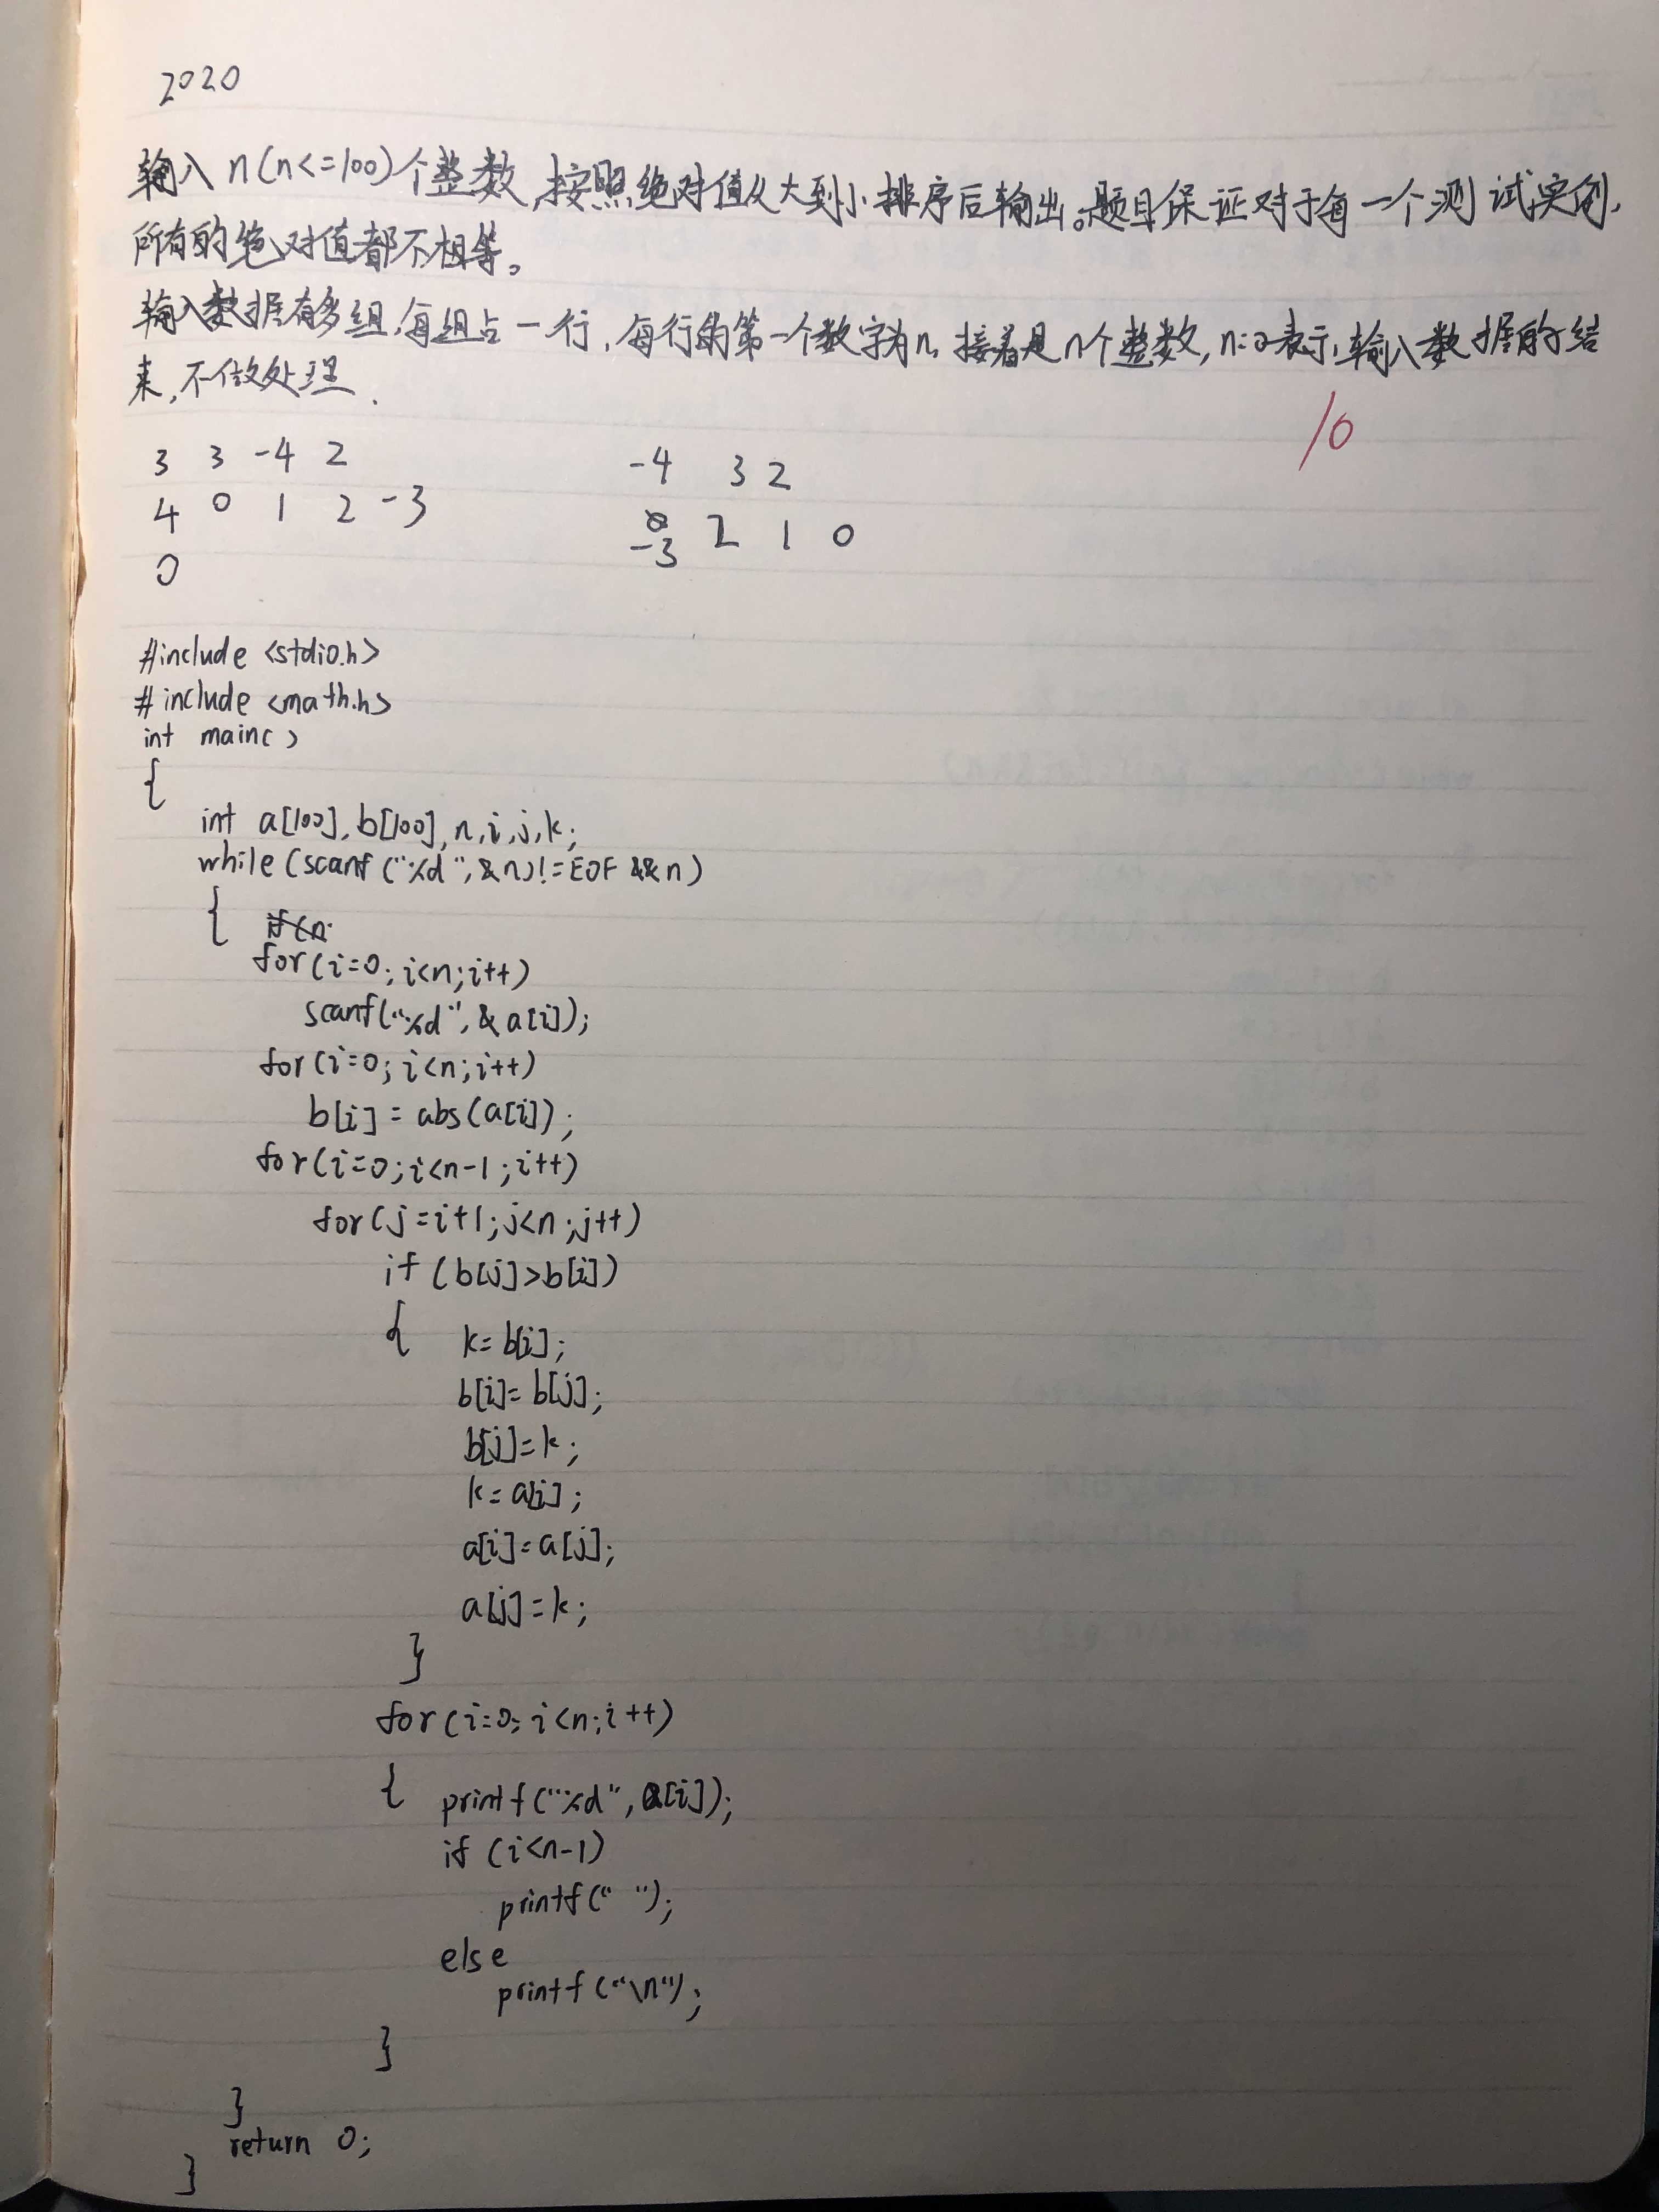 2020
输入n(n<=100)个整数,按照绝对值从大到小排序后输出。题目保证对于每一个测试实例,
所有的绝对值都不相等。
输入数据有多组,每组占一行,每行的第一个数字为n,接着是n个整数,n=0表示输入数据的结
束,不做处理.
10
3 3 -4 2
-4 3 2
4 0 1 2 -3
-3 2 1 0
0
#include <stdio.h>
#include <math.h>
int main()
{
int a[100],b[100],n,i,j,k;
while(scanf("%d",&n)!=EOF&&n)
{ if(n
for(i=0;i<n;i++)
scanf("%d",&a[i]);
for(i=0;i<n;i++)
b[i]=abs(a[i]);
for(i=0;i<n-1;i++)
for(j=i+1;j<n;j++)
if(b[j]>b[i])
{ k=b[i];
b[i]=b[j];
b[j]=k;
k=a[i];
a[i]=a[j];
a[j]=k;
}
for(i=0;i<n;i++)
{ printf("%d",a[i]);
if (i<n-1)
printf(" ");
else
printf("\n");
}
}
return 0;
}